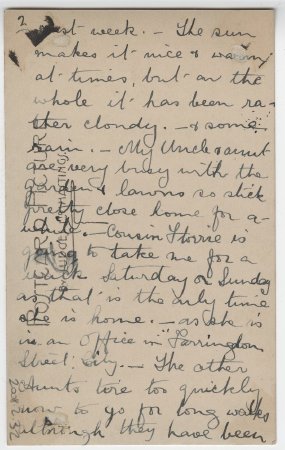 2
last week. – The sun
makes it nice & warm
at times, but on the
whole it has been ra-
ther cloudy. – & some
rain. – My Uncle & aunt
are very busy with the
garden & lawns so stick
pretty close home for a-
while. – Cousin Florrie is
going to take me for a
walk Saturday or Sunday
as that is the only time
she is home. – as she is
in an Office in "Farringdon
Street", City. – The other
Aunts tire too quickly
now to go for long walks
although they have been